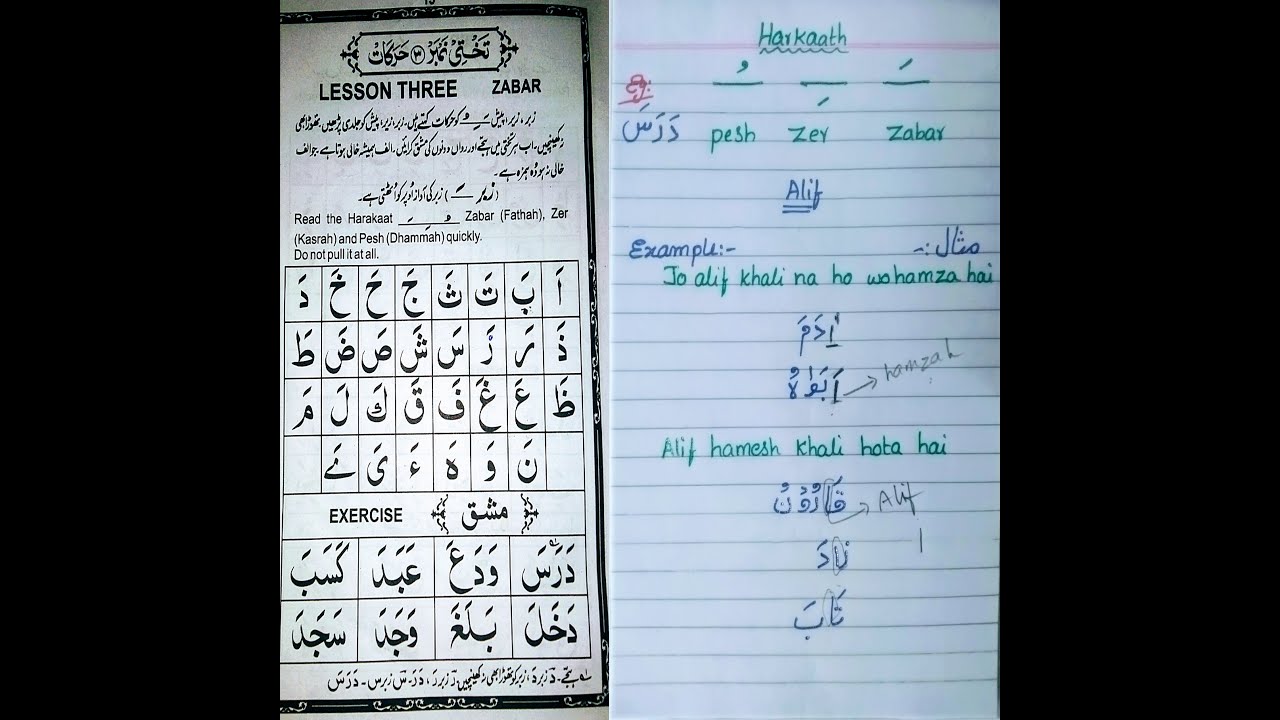 تختی نمبر ۳ حرکات
LESSON THREE ZABAR
زبر، زیر، پیش ـَـِـُ کو حرکات کہتے ہیں۔ زبر، زیر، پیش کو جلدی پڑھیں، تھوڑا بھی
نہ کھینچیں۔ اب ہر تختی میں ہجے اور رواں دونوں کی مشق کرائیں۔ الف ہمیشہ خالی ہوتا ہے۔ جو الف
خالی نہ ہو وہ ہمزہ ہے۔
(زبر ـَ) زبر کی آواز اوپر کو اٹھتی ہے۔
Read the Harakaat ـَـِـُ Zabar (Fathah), Zer
(Kasrah) and Pesh (Dhammah) quickly.
Do not pull it at all.
اَ بَ تَ ثَ جَ حَ خَ دَ
ذَ رَ زَ سَ شَ صَ ضَ طَ
ظَ عَ غَ فَ قَ كَ لَ مَ
نَ وَ هَ ءَ یَ ےَ
EXERCISE مشق
دَرَسَ وَدَعَ عَبَدَ كَسَبَ
دَخَلَ بَلَغَ وَجَدَ سَجَدَ
Harkaath
ـُ ـِ ـَ
Eg:
دَرَسَ pesh zer zabar
Alif
Example:- مثال:-
Jo alif khali na ho wo hamza hai
hamzah
Alif hamesh khali hota hai
Alif
ا
زَادَ
تَابَ